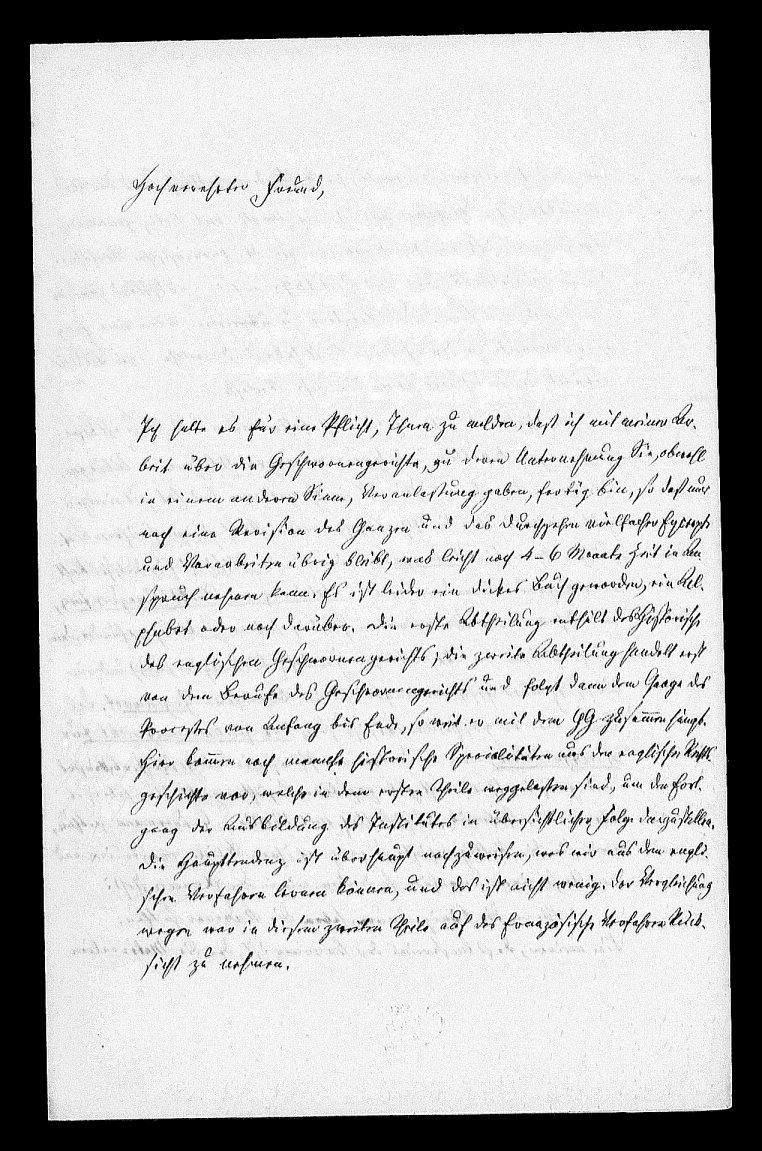 Hochverehrter Freund,
Ich halte es für eine Pflicht, Ihnen zu melden, daß ich mit meiner Ar-
beit über die Geschwornengerichte, zu deren Unternehmung Sie, obwohl
in einem anderen Sinne, Veranlassung gaben, fertig bin, so daß nur
noch eine Revision des Ganzen und das Durchgehen vielfacher Excerpte
und Vorarbeiten übrig bleibt, was leicht noch 4–6 Monate Zeit in An
spruch nehmen kann. Es ist leider ein dickes Buch geworden, ein Al-
phabet oder noch darüber. Die erste Abtheilung enthält das Historische
des englischen Geschwornengerichts; die zweite Abtheilung handelt erst
von dem Berufe des Geschwornengerichts und folgt dann dem Gange des
Processes von Anfang bis Ende, so weit er mit dem GG zusammenhängt.
Hier kommen noch manche historische Specialitäten aus der englischen Rechts
geschichte vor, welche in dem ersten Theile weggelassen sind, um den Fort-
gang der Ausbildung des Institutes in übersichtlicher Folge darzustellen.
Die Haupttendenz ist überhaupt nachzuweisen, was wir aus dem engli-
schen Verfahren lernen können, und das ist nicht wenig. Der Vergleichung
wegen war in diesem zweiten Theile auf das französische Verfahren Rück-
sicht zu nehmen.